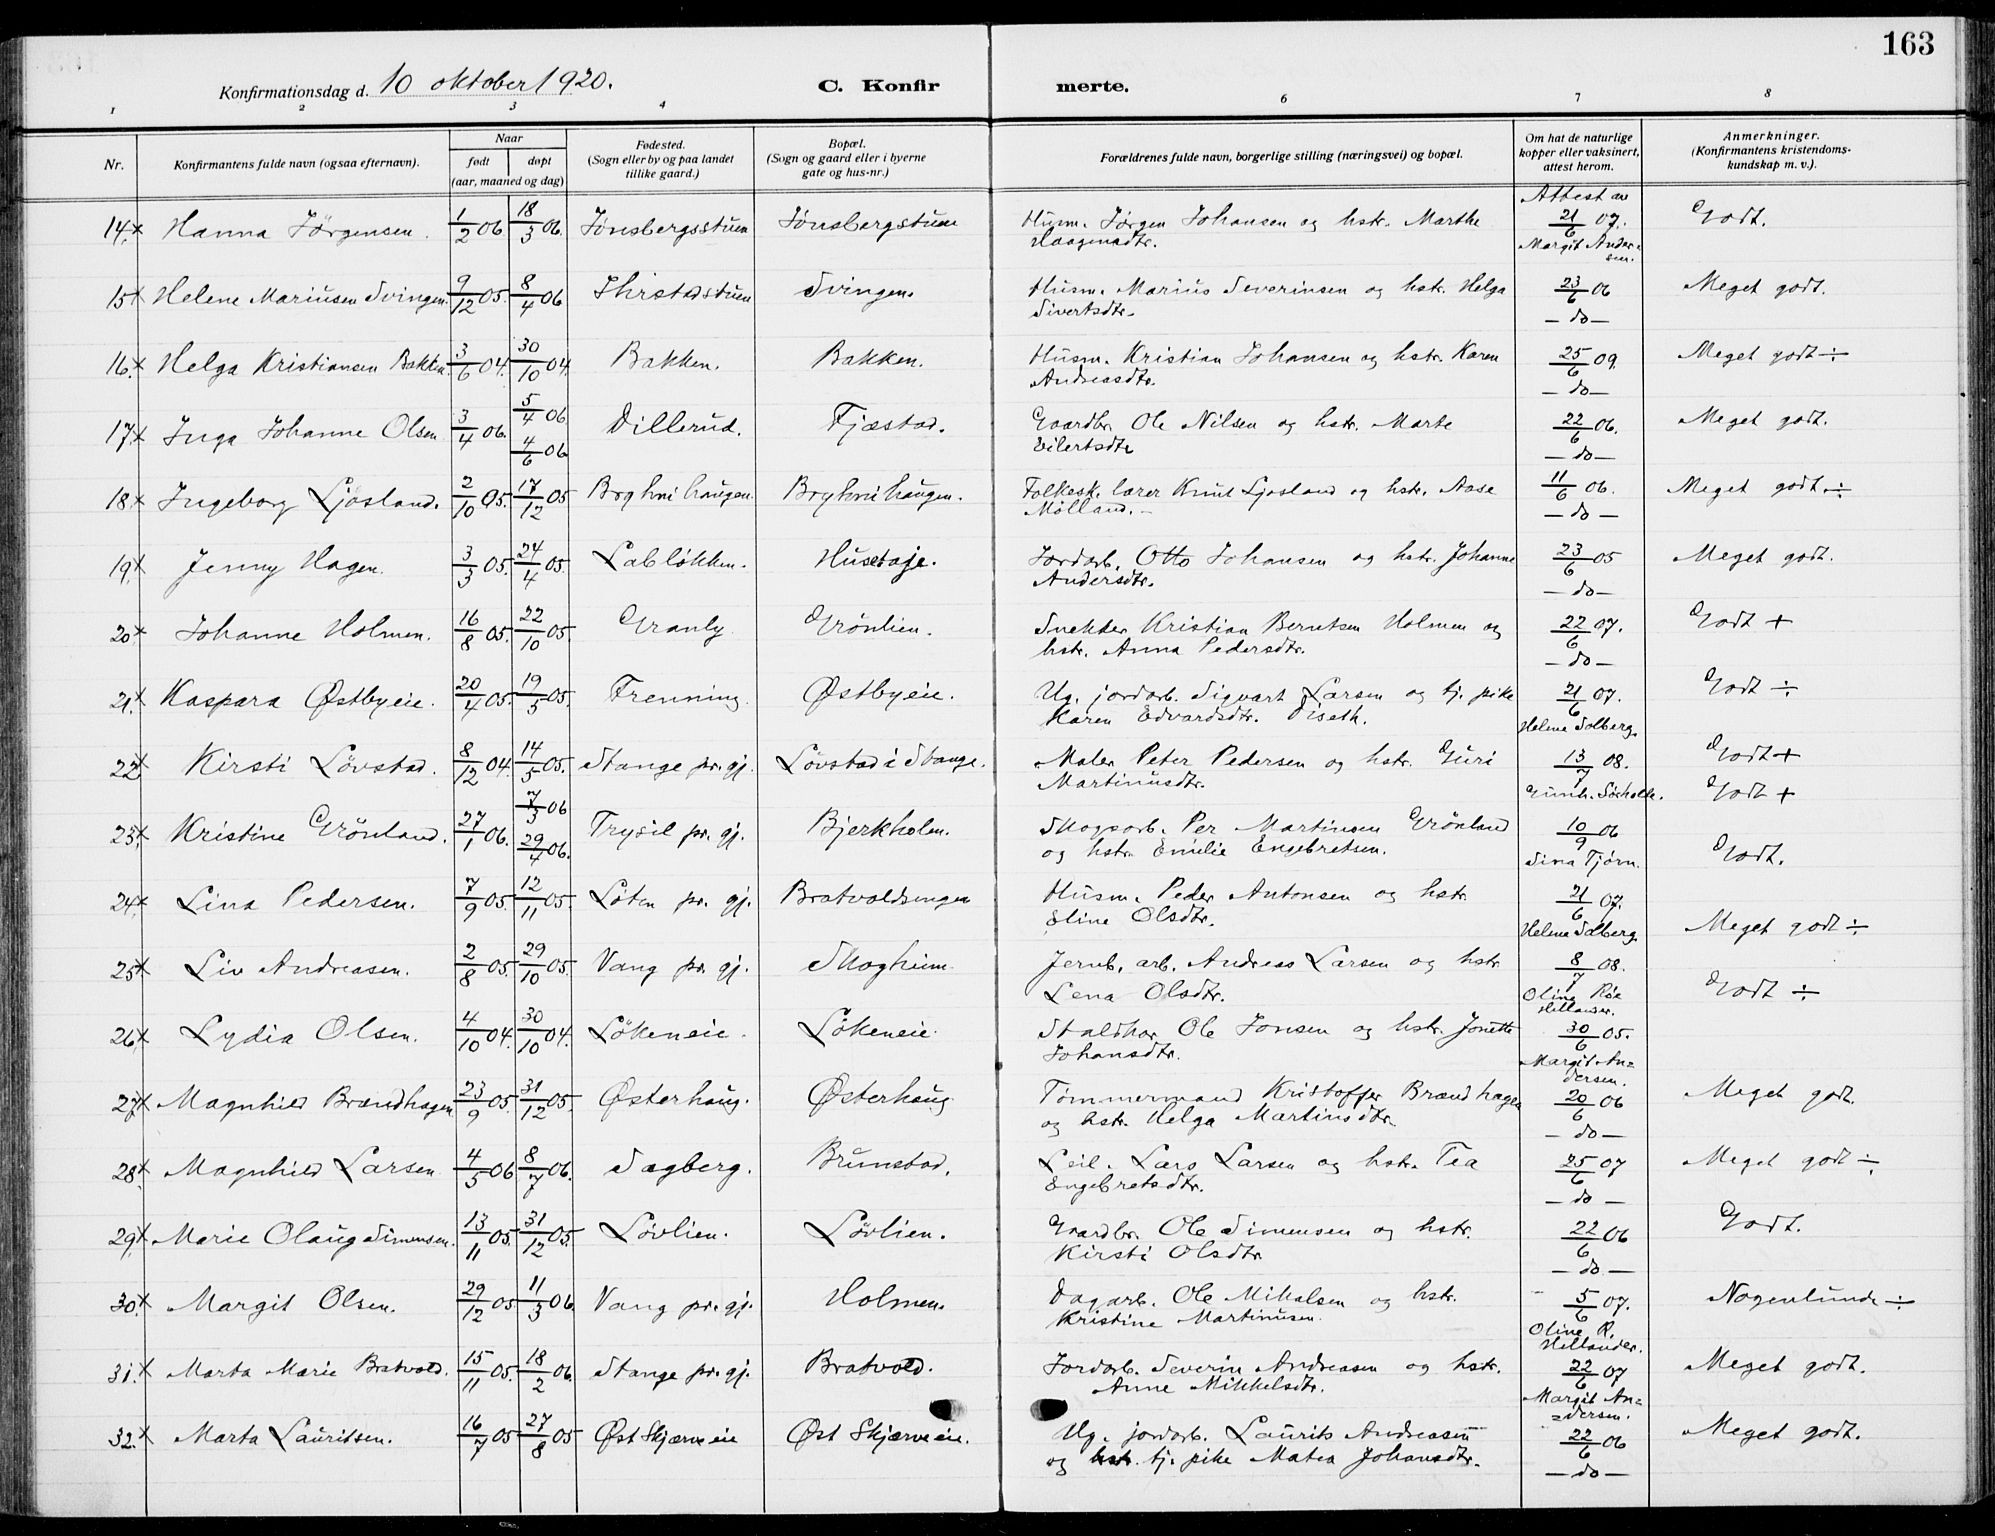 163
Konfirmationsdag d. 10 oktober 1920. C. Konfir merte.
1 2 3 4 6 7 8
Nr. Konfirmantens fulde navn (ogsaa efternavn). Naar født døpt (aar, maaned og dag) Fødested. (Sogn eller by og paa landet tillike gaard.) Bopæl. (Sogn og gaard eller i byerne gate og hus-nr.) Forældrenes fulde navn, borgerlige stilling (næringsvei) og bopæl. Om hat de naturlige kopper eller vaksinert, attest herom. Anmerkninger. (Konfirmantens kristendoms-kundskap m. v.).
14. x Hanna Jörgensen. 1/2 06 18/3 06. Jönsbergsstuen Jönsbergstuen Husm. Jørgen Johansen og hstr. Marthe Haagensdtr. Attest av 21/6 07. Margit Andersen. Godt.
15 x Helene Mariusen Svingen. 9/12 05. 8/4 06 Thirstadstuen Svingen. Husm. Marius Severinsen og hstr. Helga Sivertsdtr. 23/6 06 — do — Meget godt.
16. x Helga Kristiansen Bakken. 3/6 04. 30/10 04. Bakken. Bakken. Husm. Kristian Johansen og hstr. Karen Andreasdtr. 25/6 09. — do — Meget godt ÷
17. x Inga Johanne Olsen 3/4 06. 5/4 06 4/6 06 Dillerud. Fjæstad. Gaardbr. Ole Nilsen og hstr. Marte Eilertsdtr 22/6 06. — do — Meget godt.
18. x Ingeborg Ljösland. 2/10 05. 17/12 05 Bryhni haugen. Bryhni haugen. Folkesk. lærer Knut Ljosland og hstr. Aase Mølland. — 11/6 06. — do — Meget godt ÷
19. x Jenny Hagen. 3/3 05. 24/4 05. Labløkken. Husetaje. Jordarb. Otto Johansen og hstr. Johanne Andersdtr. 23/6 05 — do — Meget godt.
20. x Johanne Holmen. 16/8 05. 22/10 05. Granly Grönlien. Snekker Kristian Berntsen Holmen og hstr. Anna Pedersdtr. 22/6 07. — do — Godt +
21. x Kaspara Østbyeie. 20/4 05. 19/5 05. Frenning. Østbyeie. Ug. jordarb. Sigvart Larsen og tj. pike Karen Edvardsdtr. Diseth. 21/6 07. Helena Solberg. Godt ÷
22 x Kirsti Lövstad. 8/12 04. 14/5 05. Stange pr. gj. Lövstad i Stange. Maler Peter Pedersen og hstr. Guri Martinusdtr. 13/7 08. Godt +
23. x Kristine Grönland. 27/1 06. 7/3 06 29/4 06. Trysil pr. gj. Bjerkholm. Skogsarb. Per Martinsen Grönland og hstr. Emelie Engebretsen. 10/9 06 Sina Tjörn. Godt +
24. x Lina Pedersen. 7/9 05. 12/11 05. Löten pr. gj. Bratvoldsengen Husm. Peder Antonsen og hstr. Eline Olsdtr. 21/6 07. Helena Solberg. Godt.
25 x Liv Andreasen. 2/8 05. 29/10 05. Vang pr. gj. Skogheim. Jernb. arb. Andreas Larsen og hstr Lena Olsdtr. 8/7 08. Meget godt ÷
26. x Lydia Olsen. 4/10 04. 30/10 04. Lökeneie. Lökeneie. Staldkar Ole Jonsen og hstr. Jonette Johansdtr. 30/6 05. Margit Andersen. Godt ÷
27 x Magnhild Brændhagen 23/9 05. 31/12 05. Østerhaug. Østerhaug Tömmermand Kristoffer Brændhagen og hstr. Helga Martinsdtr. 20/6 06 — do — Meget godt.
28. x Magnhild Larsen 4/5 06 8/7 06. Sagberg. Brunstad. Leil. Lars Larsen og hstr. Tea Engebretsdtr. 25/6 07 — do — Meget godt ÷
29. x Marie Olaug Simensen. 13/11 05. 31/12 05. Lövlien. Lövlien. Gaardbr. Ole Simensen og hstr. Kirsti Olsdtr 22/6 06 — do — Godt.
30. x Margit Olsen. 29/12 05 11/3 06. Vang pr. gj. Holmen. Dagarb. Ole Mikalsen og hstr. Kristine Martinusen. 5/6 07. Oline R. Hellander. Nogenlunde ÷
31. x Marta Marie Bratvold. 15/11 05. 18/2 06. Stange pr. gj. Bratvold. Jordarb. Severin Andreasen og hstr. Anne Mikkelsdtr. 22/6 07 Margit Andersen. Meget godt.
32. x Marta Lauritsen. 16/7 05 27/8 05 Øst Skjærveeie Øst Skjærveeie. Ug. jordarb. Laurits Andreasen og hstr. tj. pike Matea Johansdtr. 22/6 06 — do — Meget godt.